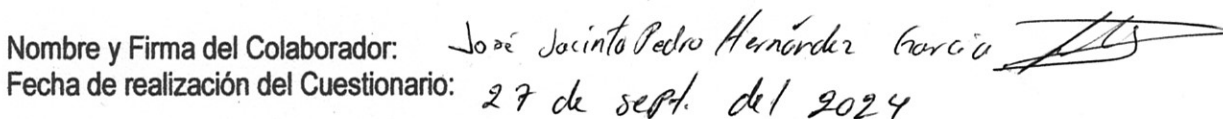 Nombre y Firma del Colaborador: José Jacinto Pedro Hernández García
Fecha de realización del Cuestionario: 27 de sept. del 2024